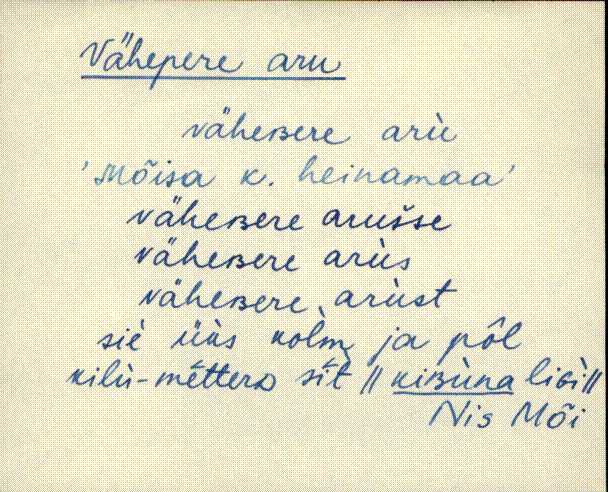 Vähepere aru
väheʙere arù
'Mõisa k. heinamaa'
väheʙere arušse
väheʙere arùs
väheʙere, arùst
siè üks kolm ja pôl
kilù-méttero sít || kiʙùna ligi ||
Nis Mõi